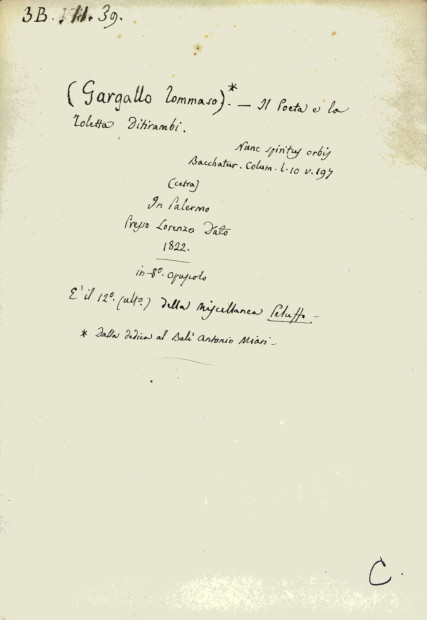 3B. VII. 39.
(Gargallo Tommaso)*. — Il Poeta e la
Toletta Ditirambi.
Nunc spiritus orbis
Bacchatur. Colum. l. 10 v. 197
(cetra)
In Palermo
Presso Lorenzo Dato
1822.
in-8º. opuscolo
E' il 12º. (ulto.) della Miscellanea Peluffo —
* Dalla dedica al Balì Antonio Miari —
C.